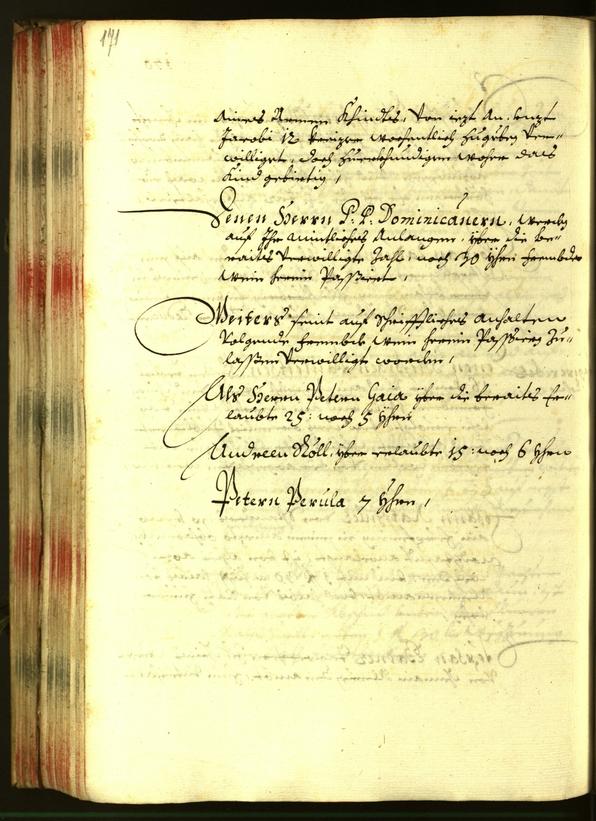 171
aines Armen Khindts, von iezt an, unzt
Jacobi 12 kreizer wochentlich zugeben ver-
williget, doch zuerkhundigen woher das
Kind gebietig,
Denen Herrn P: P: Dominicanern, werden
auf Ihr mintliches Anlangen, yber die be-
raits verwilligte Zahl, noch 30 Yhrn frembde
Wein herein Passiert,
Weiters seint auf Schrifftliches Anhalten
Volgende frembde Wein herein Passieren zu-
lassen verwilligt worden,
Als Herrn Petern Gaia yber die beraits er-
laubte 25: noch 5 Yhrn
Andreen Röll, yber erlaubte 15: noch 6 Yhrn
Petern Perula 7 Yhrn,